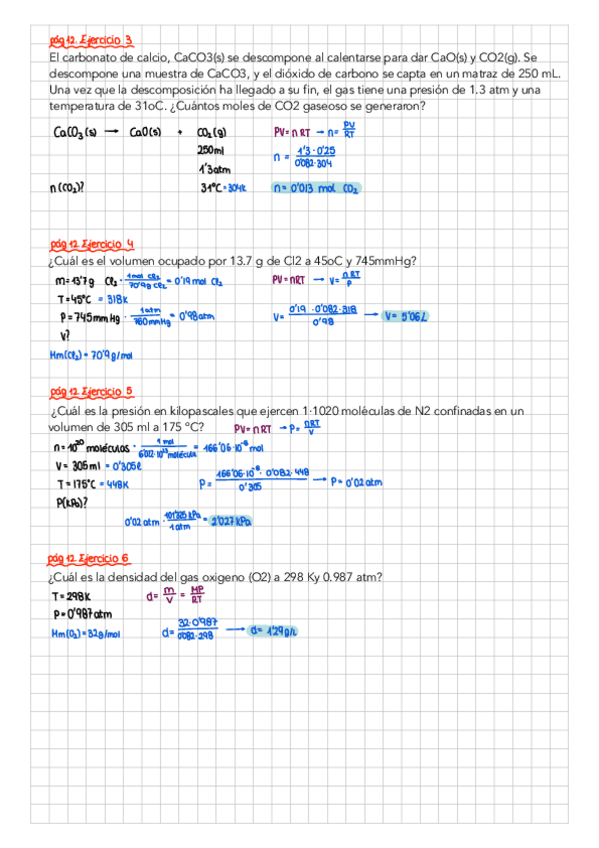 pág 12. Ejercicio 3
El carbonato de calcio, CaCO3(s) se descompone al calentarse para dar CaO(s) y CO2(g). Se
descompone una muestra de CaCO3, y el dióxido de carbono se capta en un matraz de 250 mL.
Una vez que la descomposición ha llegado a su fin, el gas tiene una presión de 1.3 atm y una
temperatura de 31oC. ¿Cuántos moles de CO2 gaseoso se generaron?
CaCO₃(s) → CaO(s) + CO₂(g) PV = nRT → n = PV/RT
250ml
n = 1'3 · 0'25 / 0'082 · 304
1'3 atm
n(CO₂)? 31ºC = 304k n = 0'013 mol CO₂
pág 12 Ejercicio 4
¿Cuál es el volumen ocupado por 13.7 g de Cl2 a 45oC y 745mmHg?
m = 13'7g Cl₂ · 1 mol Cl₂ / 70'9g Cl₂ = 0'19 mol Cl₂ PV = nRT → V = nRT/P
T = 45ºC = 318k
P = 745mmHg · 1atm / 760mmHg = 0'98atm V = 0'19 · 0'082 · 318 / 0'98 → V = 5'06L
V?
Mm(Cl₂) = 70'9 g/mol
pág 12. Ejercicio 5
¿Cuál es la presión en kilopascales que ejercen 1·1020 moléculas de N2 confinadas en un
volumen de 305 ml a 175 ºC? PV = nRT → P = nRT/V
n = 10²⁰ moléculas · 1 mol / = 166'06·10⁻⁶ mol
V = 305ml = 0'305l
T = 175ºC = 448K P = 166'06·10⁻⁶ · 0'082 · 448 / 0'305 → P = 0'02 atm
P(kPa)?
0'02 atm · 101'325 kPa / 1 atm = 2'027 kPa
pág 12. Ejercicio 6
¿Cuál es la densidad del gas oxigeno (O2) a 298 Ky 0.987 atm?
T = 298K d = m/V = MP/RT
P = 0'987 atm
Mm(O₂) = 32g/mol d = 32·0'987 / 0'082·298 → d = 1'29 g/L